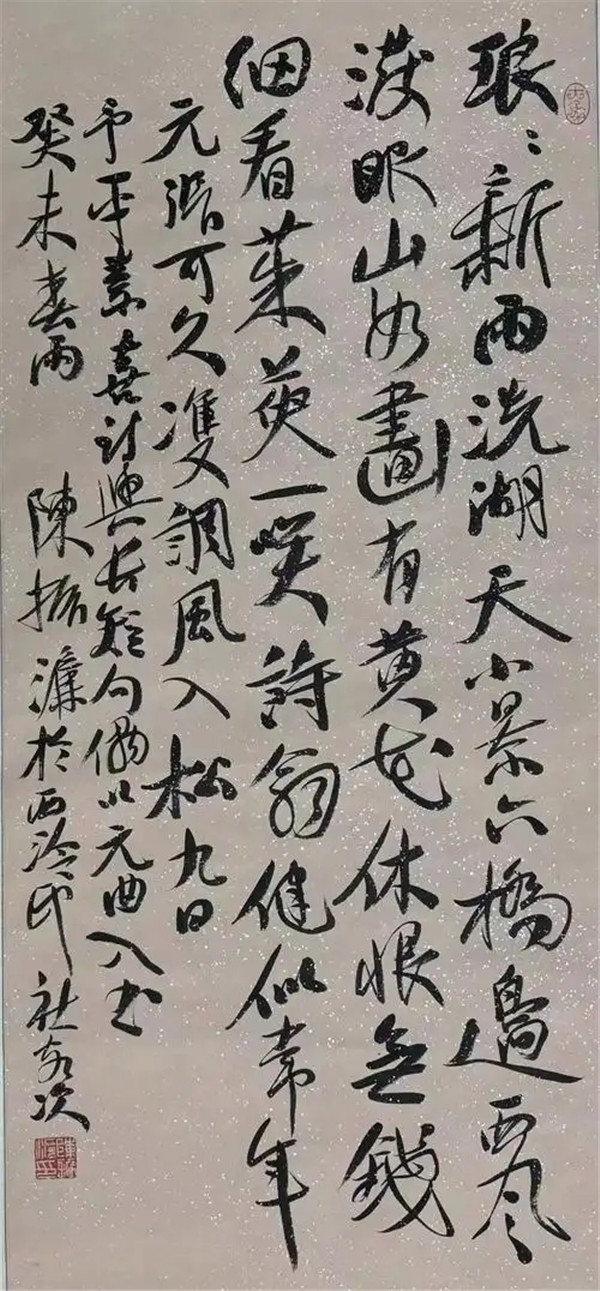 琅〻新雨洗湖天小景六橋邊西風
潑眼山如畫有黄花休恨無錢
細看茱萸一笑詩翁健似常年
元張可久雙調風入松九日
予平素喜詩與長短句偶以元曲入書
癸未春雨 陳振濂於西泠印社客次